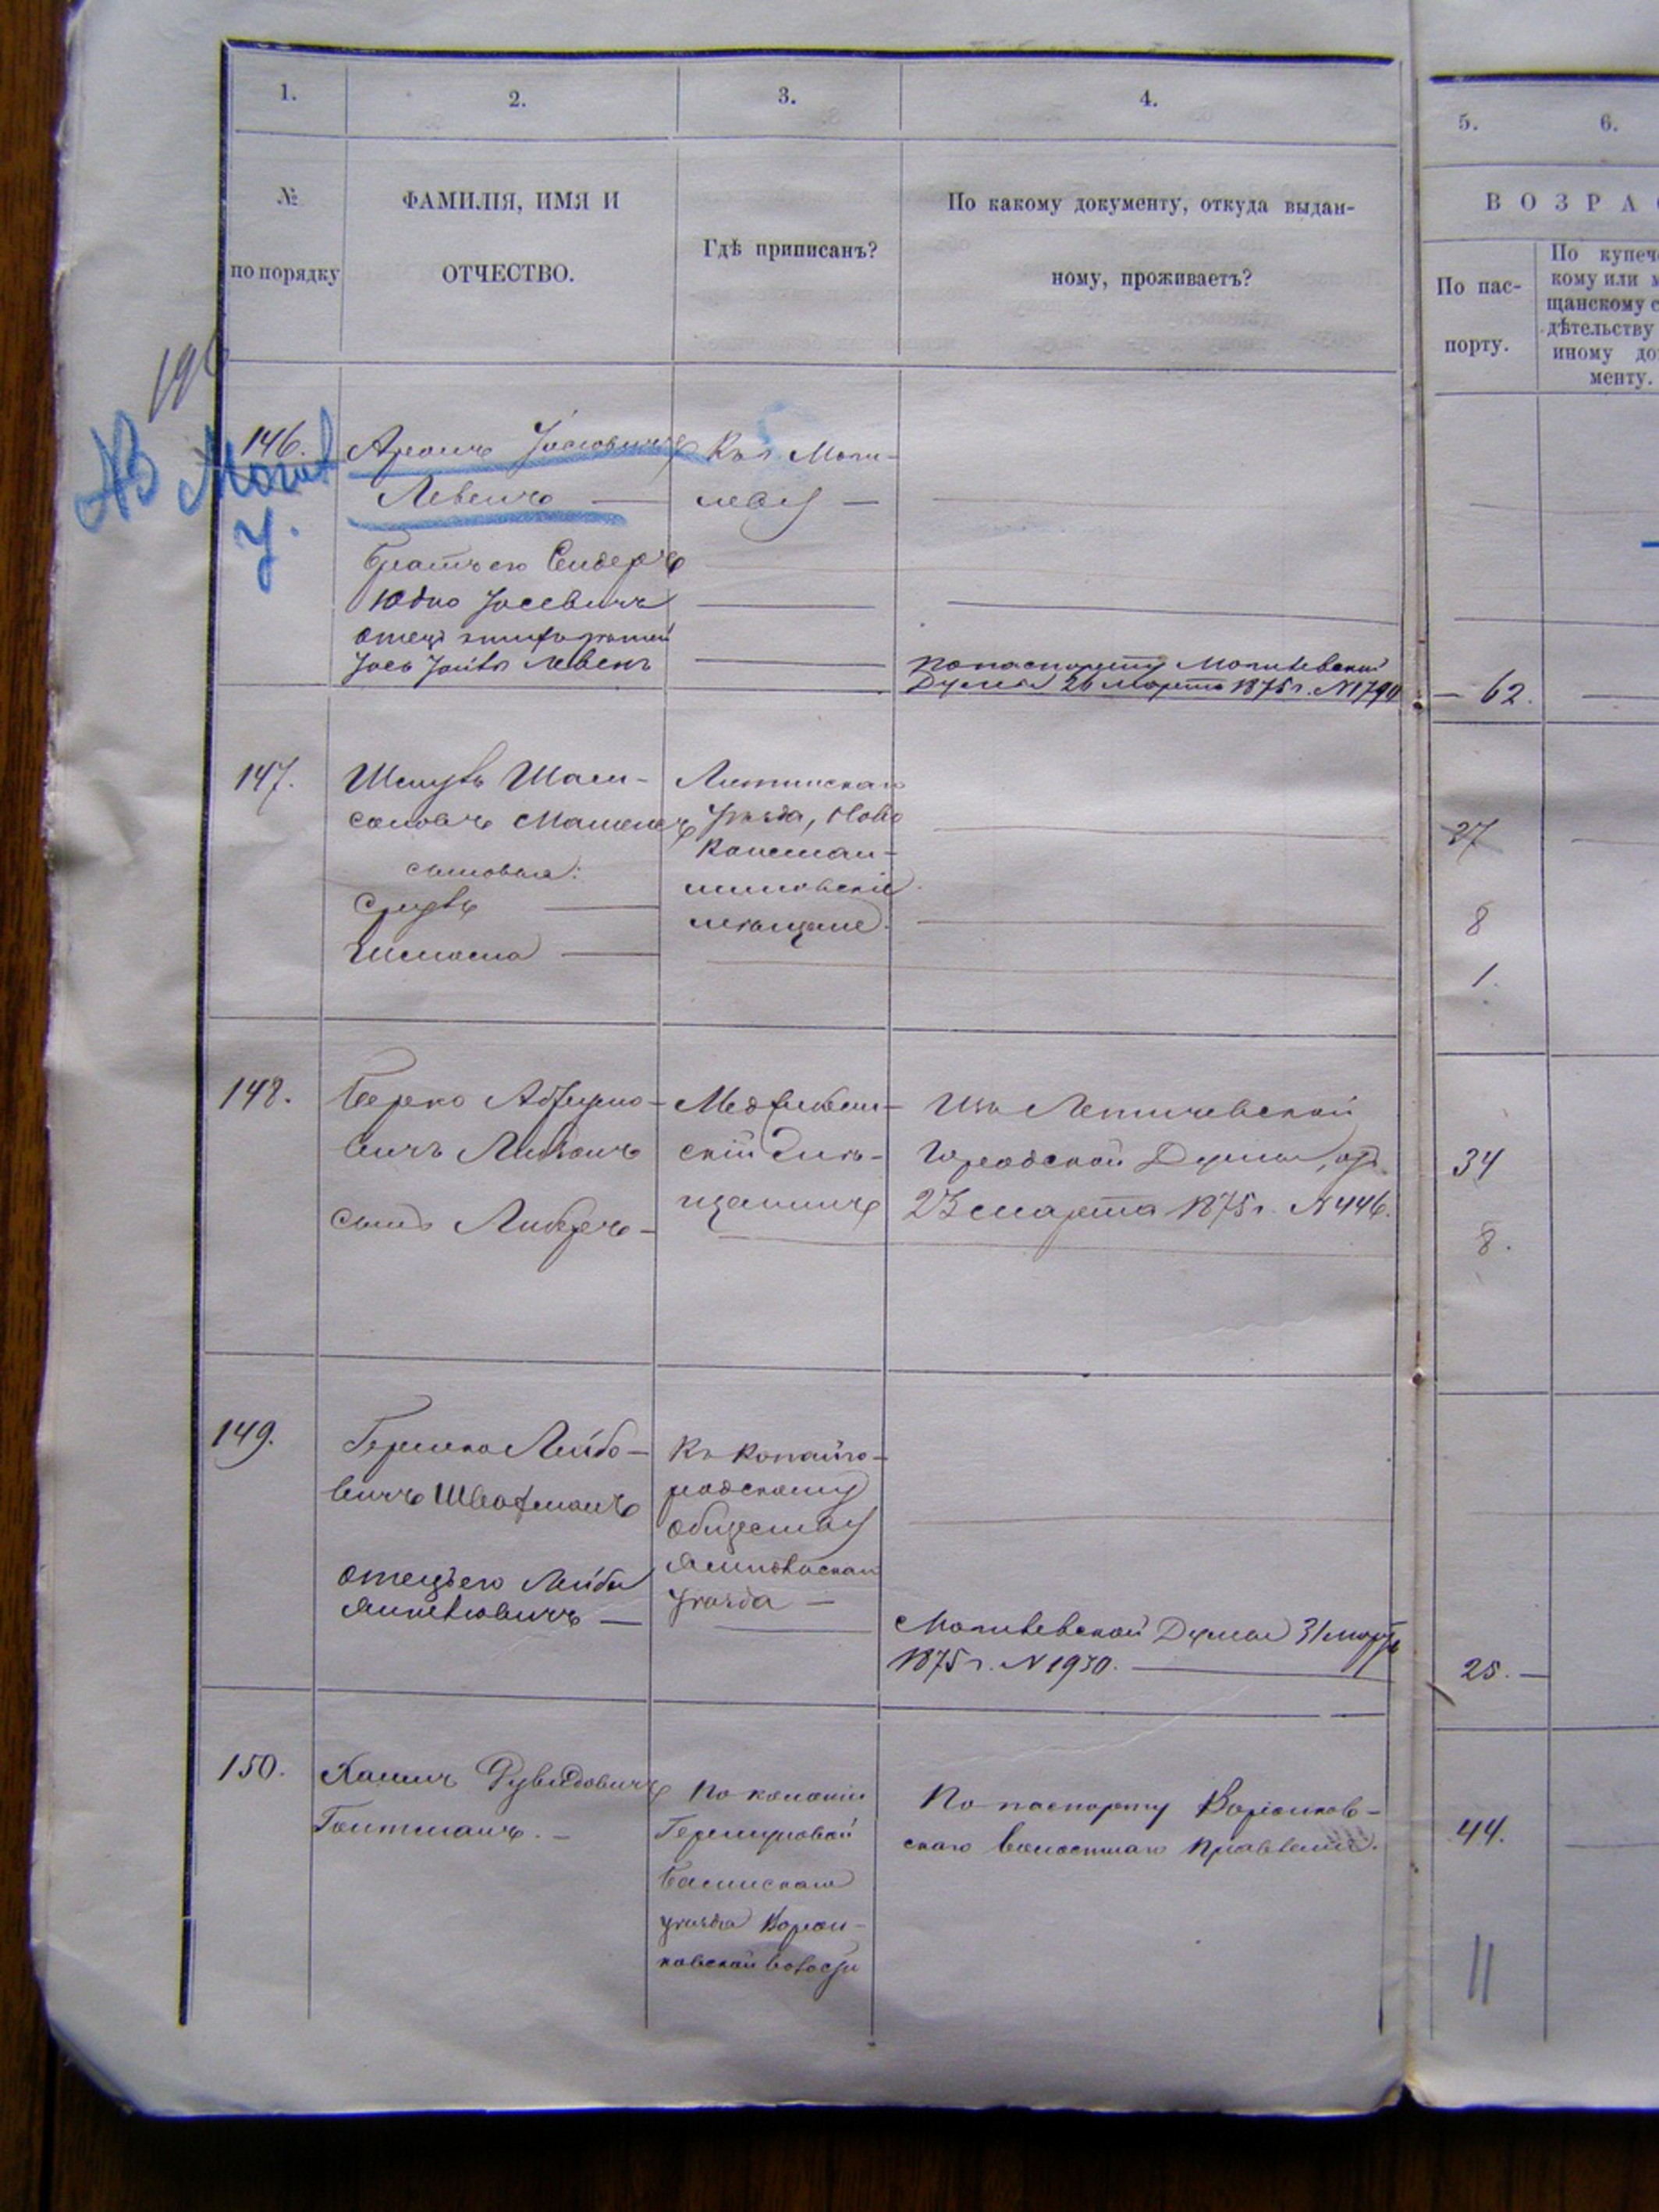 1.
2.
3.
4.
5.
6.
№
по порядку
ФАМИЛІЯ, ИМЯ И
ОТЧЕСТВО.
Гдѣ приписанъ?
По какому документу, откуда выдан-
ному, проживаетъ?
ВОЗРА
По пас-
порту.
По купеч
кому или м
щанскому с
дѣтельству
иному до
менту.
АВ
146.
Аронъ Іосіовичъ
Левенъ —
Братъ его Сендеръ
Юдко Іосевичъ
отецъ
Іось Левенъ
Къ г. Моги-
леву —
По паспорту Могилевской
Думы 26 Марта 1875 г. №
— 62.
147.
Шмуль Шам-
соновъ
сыновья:
Сруль —
Шлиома —
Литинскаго
уѣзда, Ново
Констан-
тиновскіе
мѣщане.
27
8
1.
148.
Берко Абрумо-
вичъ
сынъ Либеръ —
Меджибож-
скій мѣ-
щанинъ
Изъ Летичевской
Городской Думы, отъ
23 марта 1875 г. № 446.
34
8.
149.
Гершко Лейбо-
вичъ Швадманъ
отецъ его Лейба
Янкелевичъ —
Къ Копайго-
родскому
обществу
Ямпольскаго
уѣзда —
Могилевской Думы 31 марта
1875 г. № 1930. —
25. —
150.
Хаимъ Рувидовичъ
Гоитманъ. —
По колоніи
уѣзда Ворон-
ковской волости
По паспорту Воронков-
скаго волостнаго Правленія.
44.